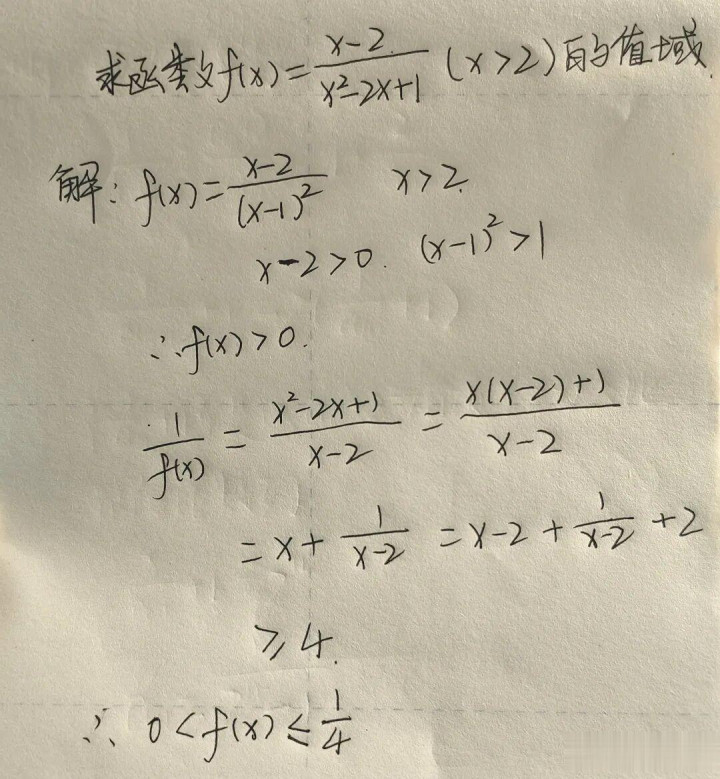 求函数f(x)=\frac{x-2}{x²-2x+1} (x>2)的值域.
解: f(x)=\frac{x-2}{(x-1)²} x>2.
x-2>0. (x-1)²>1
∴f(x)>0.
\frac{1}{f(x)}=\frac{x²-2x+1}{x-2}=\frac{x(x-2)+1}{x-2}
=x+\frac{1}{x-2}=x-2+\frac{1}{x-2}+2
≥4.
∴ 0<f(x)≤\frac{1}{4}